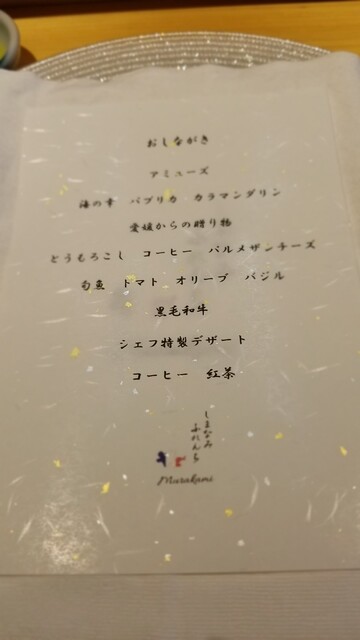 おしながき
アミューズ
海の幸 パプリカ カラマンダリン
愛媛からの贈り物
とうもろこし コーヒー パルメザンチーズ
旬魚 トマト オリーブ バジル
黒毛和牛
シェフ特製デザート
コーヒー 紅茶
しまなみ
ふれんち
Murakami